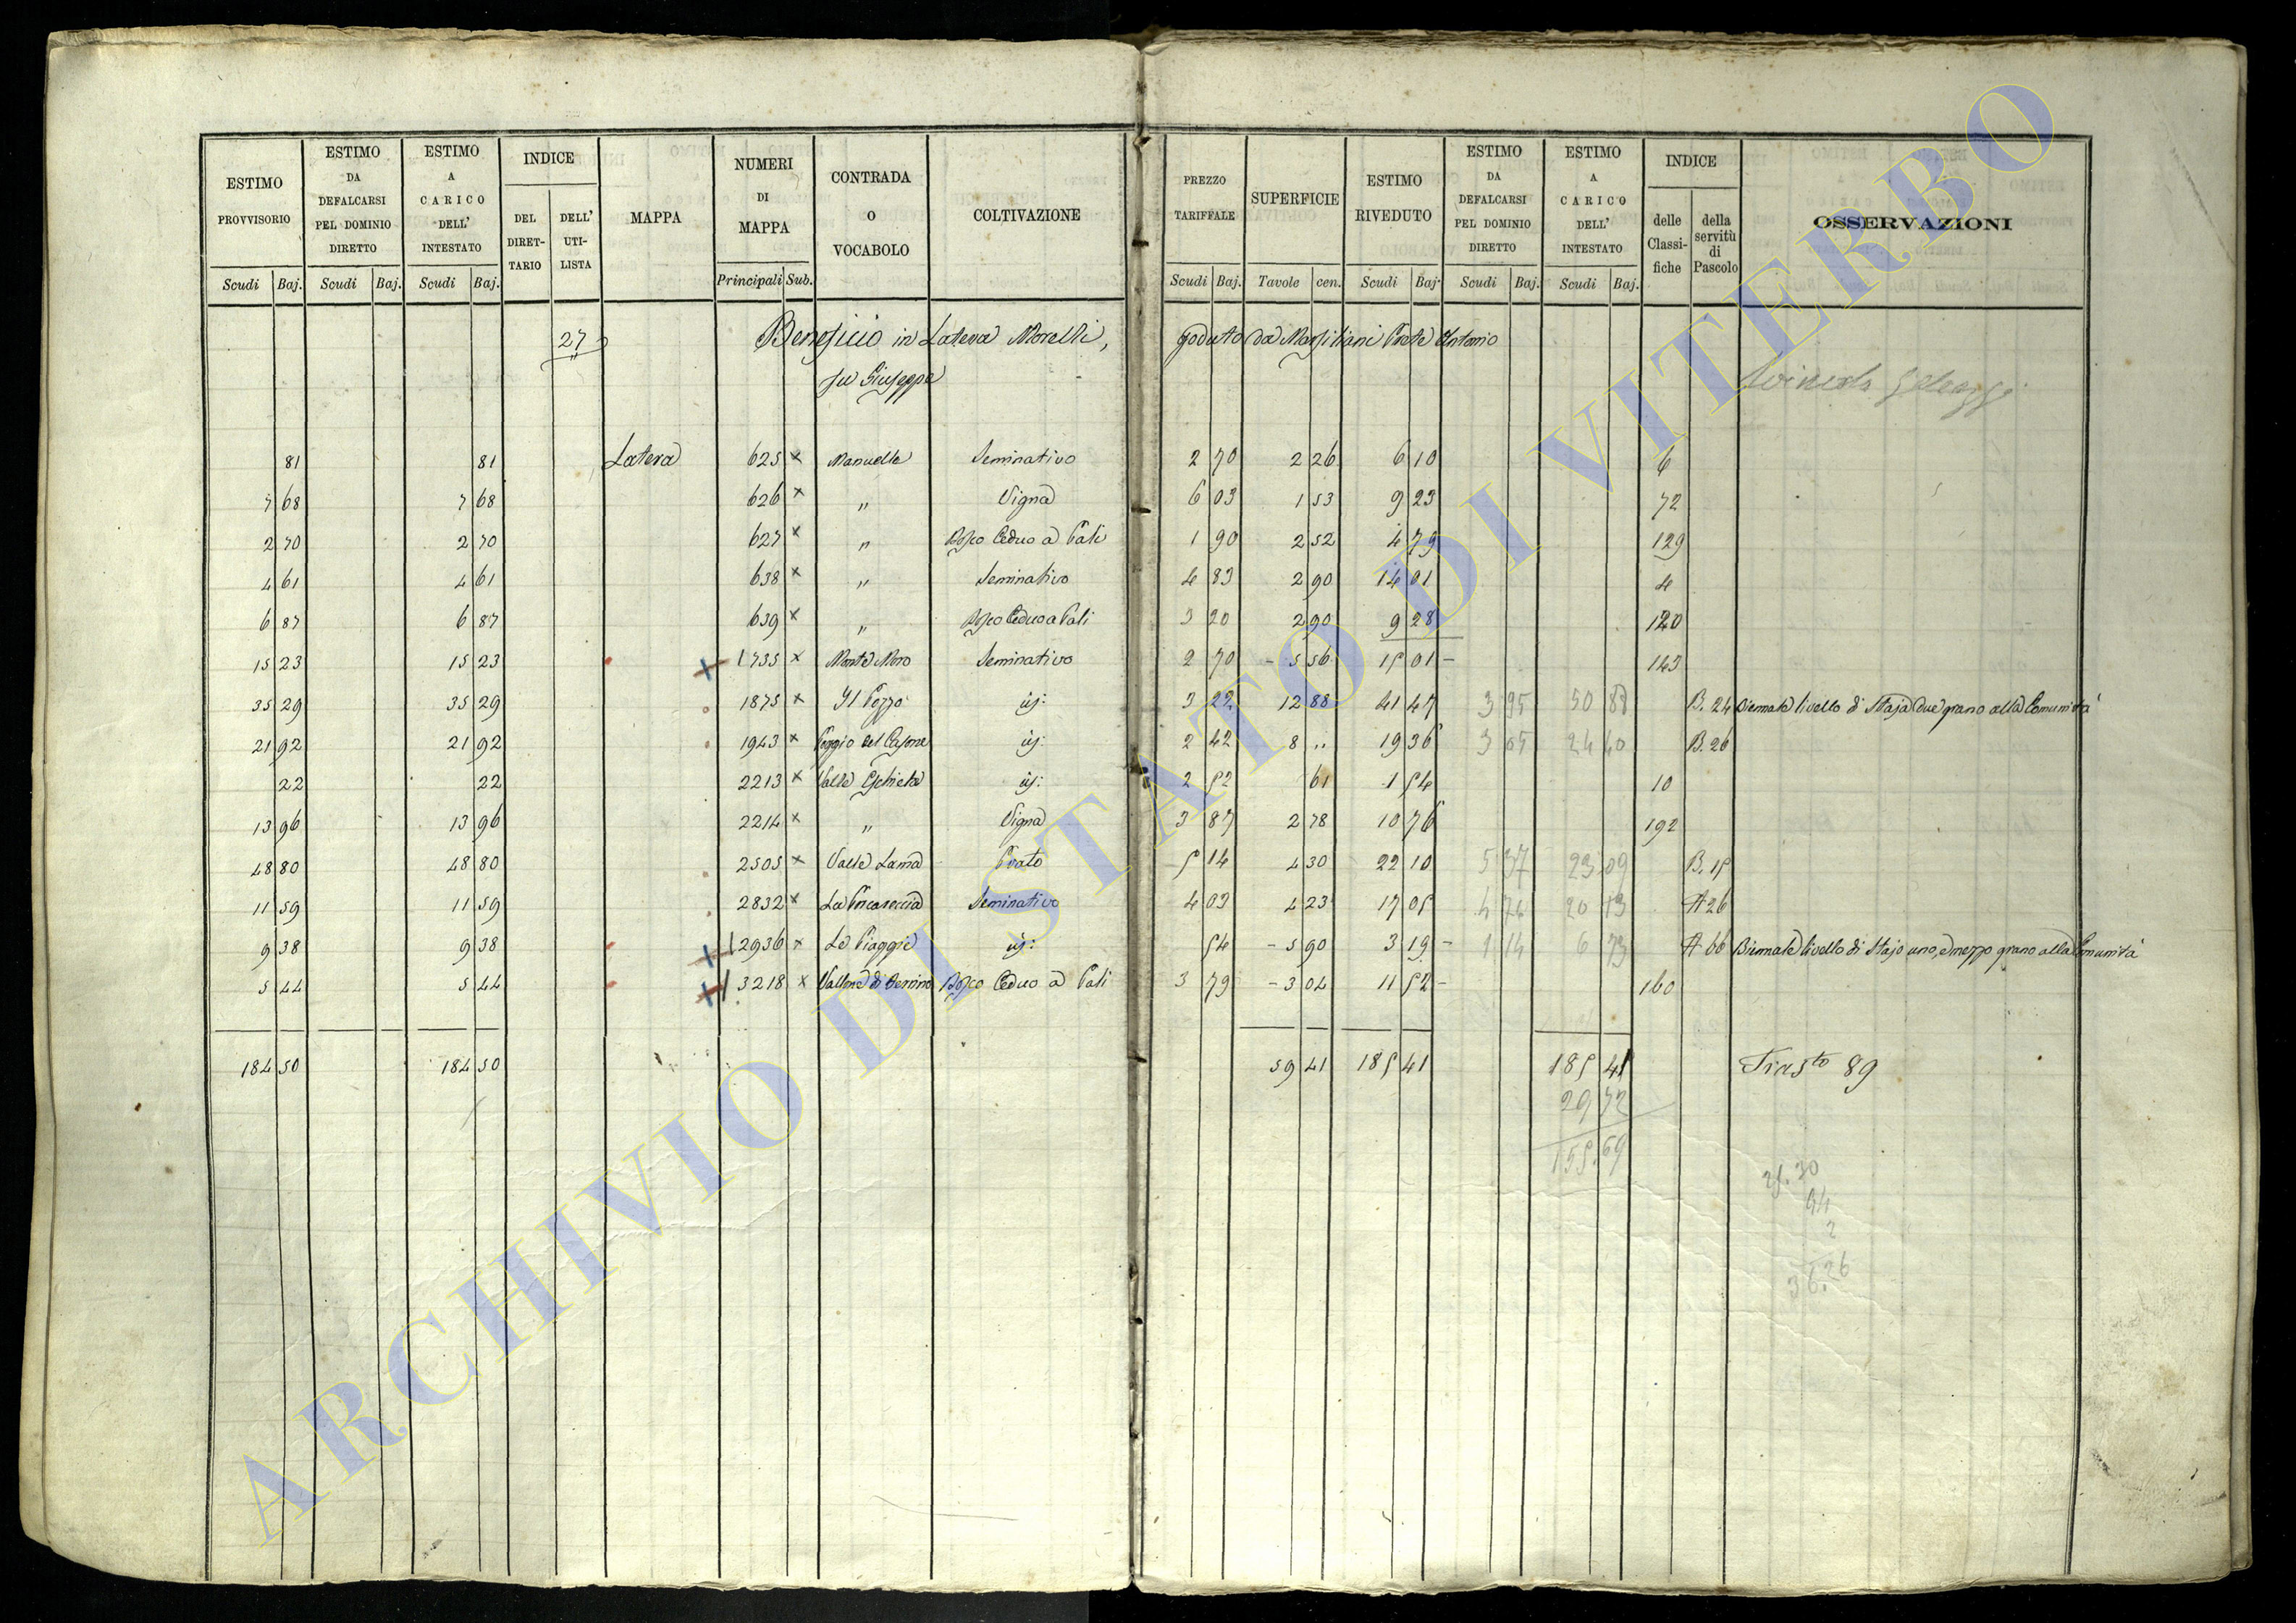 ESTIMO PROVVISORIO | ESTIMO DA DEFALCARSI PEL DOMINIO DIRETTO | ESTIMO A CARICO DELL' INTESTATO | INDICE DEL DIRET-TARIO | DELL' UTI-LISTA | MAPPA | NUMERI DI MAPPA | CONTRADA O VOCABOLO | COLTIVAZIONE | PREZZO TARIFFALE | SUPERFICIE | ESTIMO RIVEDUTO | ESTIMO DA DEFALCARSI PEL DOMINIO DIRETTO | ESTIMO A CARICO DELL' INTESTATO | INDICE delle Classi-fiche | della servitù di Pascolo | OSSERVAZIONI
Scudi Baj. | Scudi Baj. | Scudi Baj. | Principali Sub. | Scudi Baj. | Tavole cen. | Scudi Baj. | Scudi Baj. | Scudi Baj.
27 Beneficio in Latera Morelli, goduto da Marsiliani Prete Antonio
fu Giuseppe
81 | 81 | Latera | 625 x | Manuelle | Seminativo | 2 70 | 2 26 | 6 10 | 6
7 68 | 7 68 | 626 x | " | Vigna | 6 03 | 1 53 | 9 23 | 72
2 70 | 2 70 | 627 x | " | Bosco Ceduo a Pali | 1 90 | 2 52 | 4 79 | 129
4 61 | 4 61 | 638 x | " | Seminativo | 4 83 | 2 90 | 14 01 | 4
6 87 | 6 87 | 639 x | " | Bosco Ceduo a Pali | 3 20 | 2 90 | 9 28 | 120
15 23 | 15 23 | 1735 x | Monte Moro | Seminativo | 2 70 | - 5 56 | 15 01 - | 143
35 29 | 35 29 | 1875 x | Il Pozzo | id: | 3 22 | 12 88 | 41 47 | 3 95 | 50 88 | B. 24 | Biennale livello di Staja due grano alla Comunità
21 92 | 21 92 | 1943 x | Poggio del Casone | id: | 2 42 | 8 " | 19 36 | 3 05 | 24 40 | B. 26
22 | 22 | 2213 x | Valle | id: | 2 52 | 61 | 1 54 | 10
13 96 | 13 96 | 2214 x | " | Vigna | 3 87 | 2 78 | 10 76 | 192
48 80 | 48 80 | 2505 x | Valle Lama | Prato | 5 14 | 4 30 | 22 10 | 5 37 | 23 09 | B. 15
11 59 | 11 59 | 2832 x | La Porcareccia | Seminativo | 4 03 | 4 23 | 17 05 | 4 74 | 20 13 | A 26
9 38 | 9 38 | 2936 x | Le Piaggie | id: | 54 | - 5 90 | 3 19 - | 1 14 | 6 73 | A 66 | Biennale livello di Stajo uno, e mezzo grano alla Comunità
5 44 | 5 44 | 3218 x | Vallone di | Bosco Ceduo a Pali | 3 79 | - 3 04 | 11 52 - | 160
184 50 | 184 50 | 59 41 | 185 41 | 185 41 | 89
29 72
155.69
25.30
94
2
36.26
ARCHIVIO DI STATO DI VITERBO